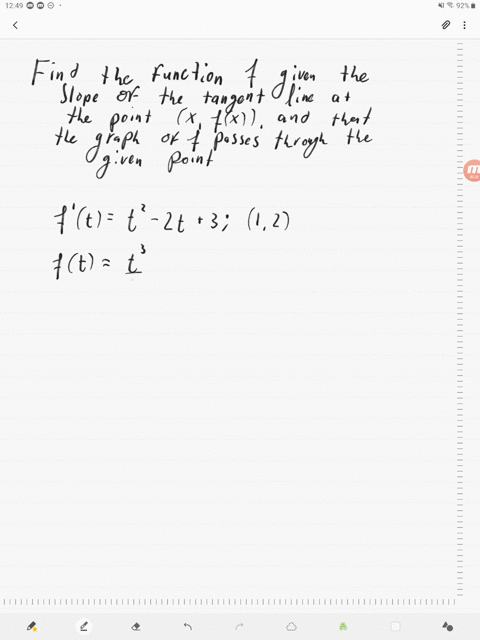 12:49
92%
Find the function f given the
slope of the tangent line at
the point (x, f(x)), and that
the graph of f passes through the
given point
f'(t) = t² - 2t + 3; (1, 2)
f(t) = t³